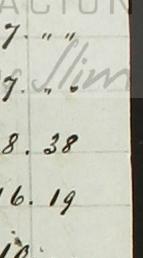 ACION
7. " "
Slim
7. " "
8. 38
16. 19